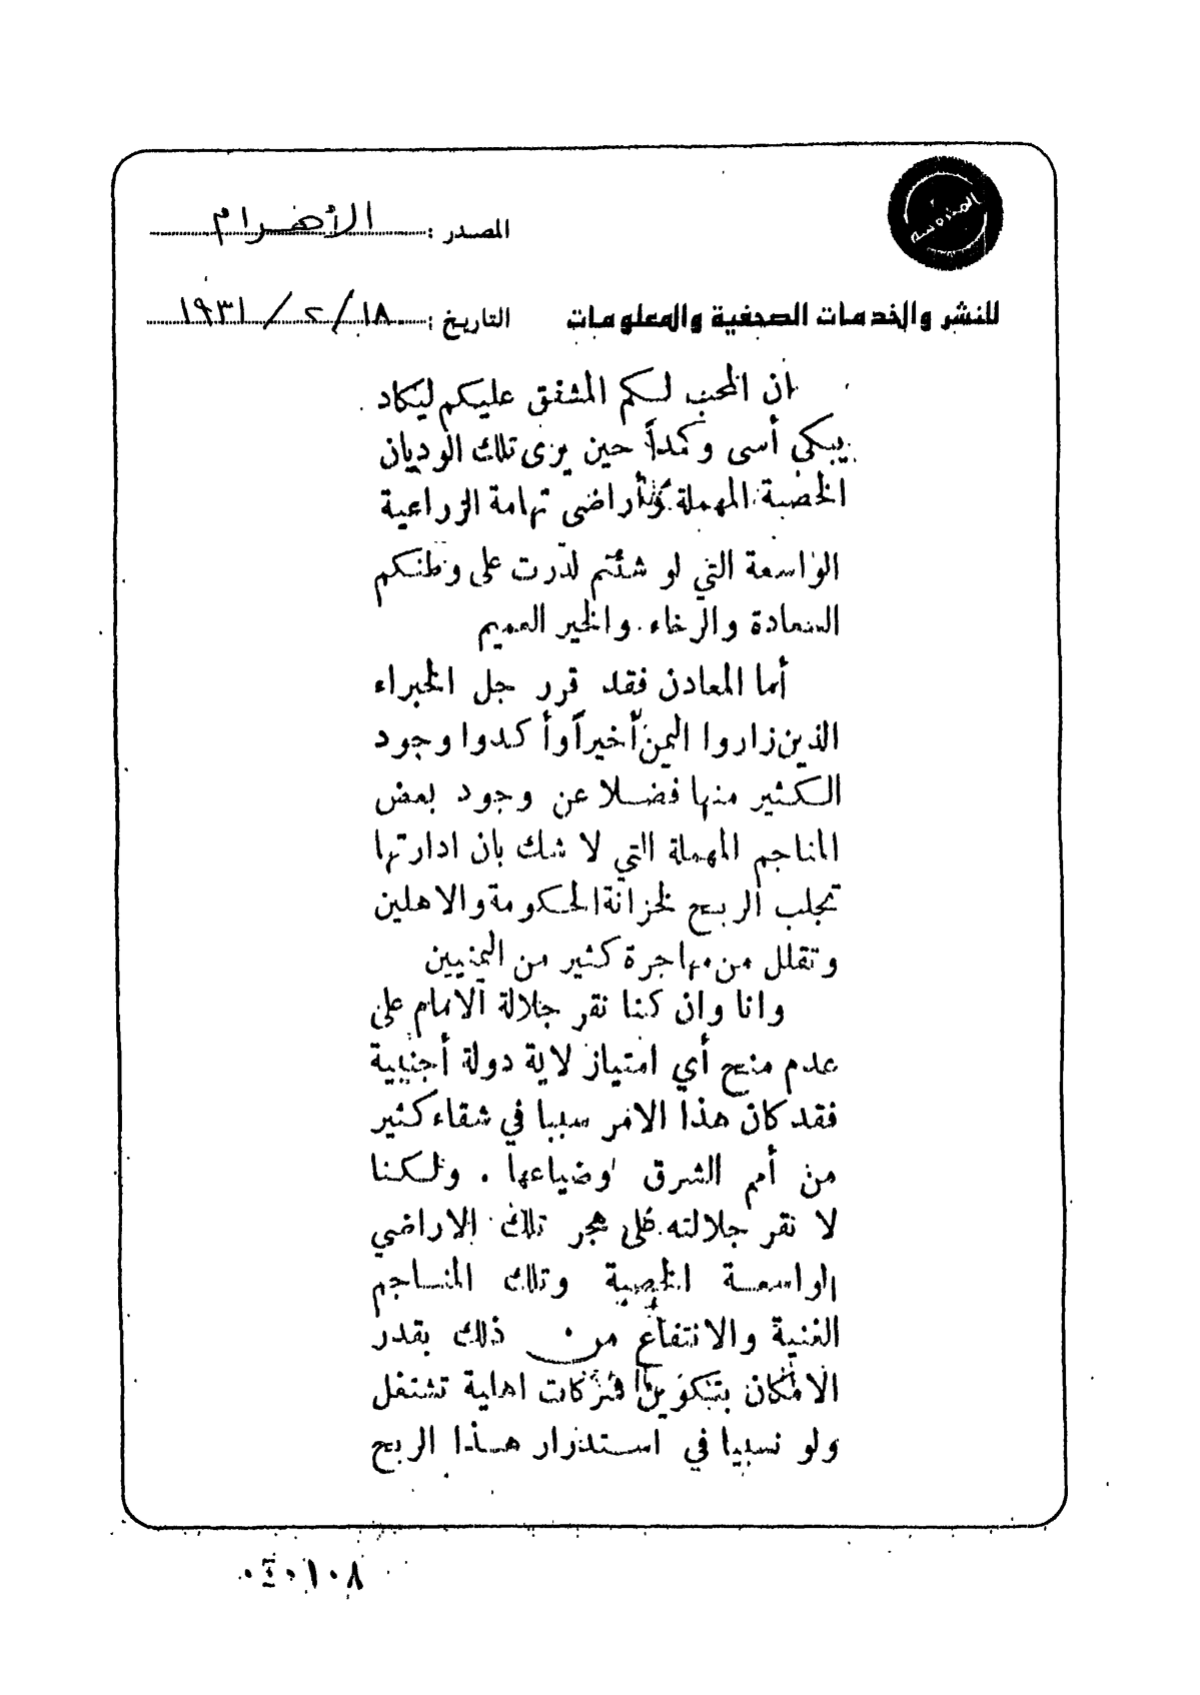 المحروسه
المصدر : الأهرام
للنشر والخدمات الصحفية والمعلومات
التاريخ : ١٨/ ٢ / ١٩٣١
ان المحب لكم المشفق عليكم ليكاد
يبكي أسى وكمداً حين يرى تلك الوديان
الخصبة المهملة وأراضى تهامة الزراعية
الواسعة التي لو شئتم لدرت على وطنكم
السعادة والرخاء والخير العميم
أما المعادن فقد قرر جل الخبراء
الذين زاروا اليمن أخيراً وأكدوا وجود
الكثير منها فضلا عن وجود بعض
المناجم المهملة التي لا شك بان ادارتها
تجلب الربح لخزانة الحكومة والاهلين
وتقلل من مهاجرة كثير من اليمنيين
وانا وان كنا نقر جلالة الامام على
عدم منح أي امتياز لاية دولة أجنبية
فقد كان هذا الامر سببا في شقاء كثير
من أمم الشرق وضياعها . ولكنا
لا نقر جلالته على هجر تلك الاراضي
الواسعة الخصبة وتلك المناجم
الغنية والانتفاع من ذلك بقدر
الامكان بتكوين شركات اهلية تشتغل
ولو نسبيا في استدرار هذا الربح
٠٤٠١٠٨